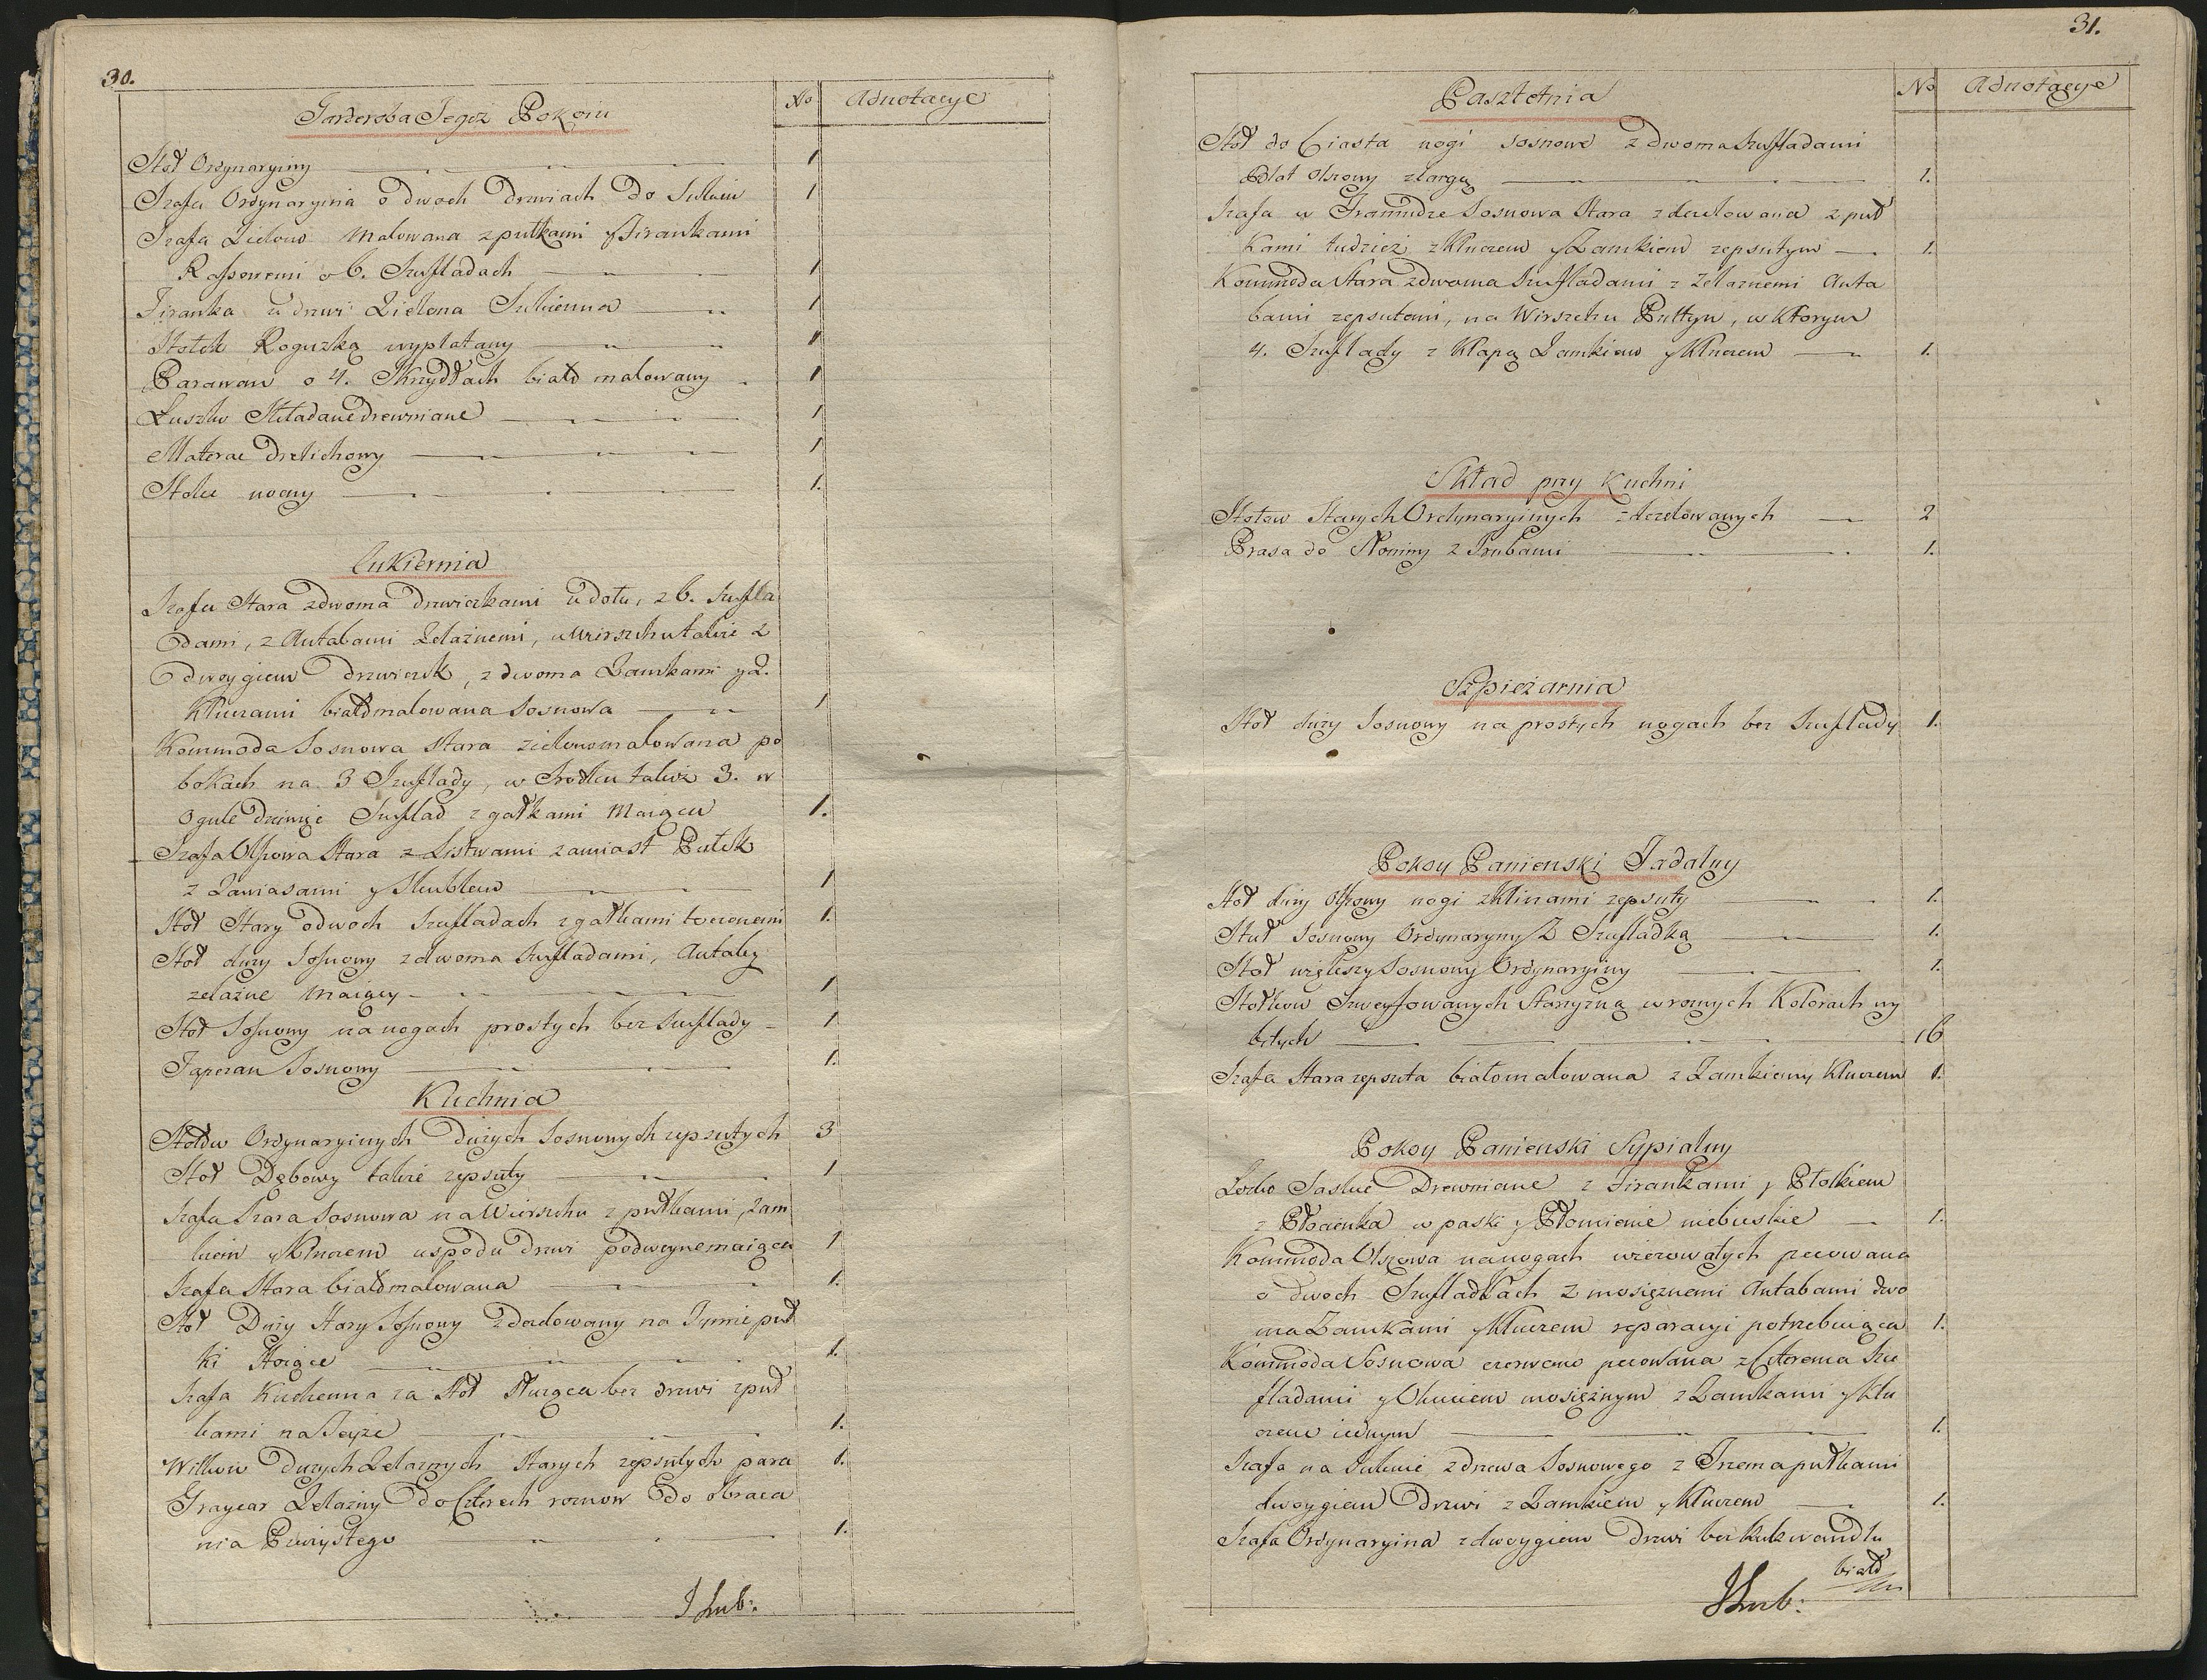 30.
Garderoba Tegoż Pokoiu
No
Adnotacye
Stoł Ordynaryiny 1
Szafa Ordynaryina o dwoch drzwiach do Sukień 1
Szafa Zielono Malowana z pułkami y Firankami
Rassowemi o 6. Szufladach 1
Firanka u drzwi Zielona Sukienna 1
Stołek Roguzką wyplatany 1
Parawan o 4. Skrzydłach biało malowany 1
Łuszko Składane drewniane 1
Materac drelichowy 1
Stolec nocny 1.
Cukiernia
Szafa Stara z dwoma drzwiczkami u dołu, z 6. Szufla
dami, z Antabami Żelaznemi, u Wierszchu także z
dwoygiem drzwiczek, z dwoma Zamkami y 2.
Kluczami biało malowana Sosnowa 1
Kommoda Sosnowa Stara zielono malowana po
bokach na 3 Szuflady, w Srodku także 3. w
ogule dziewięć Szuflad z gałkami Maiąca 1.
Szafa Olszowa Stara z Listwami zamiast Pułek
z Zawiasami y Skublem 1
Stoł Stary o dwoch Szufladach z gałkami toczonemi 1.
Stoł duży Sosnowy z dwoma Szufladami, Antaby
żelazne Maiący 1
Stoł Sosnowy na nogach prostych bez Szuflady 1
Tapczan Sosnowy 1.
Kuchnia
Stołów Ordynaryinych Dużych Sosnowych zepsutych 3
Stoł Dębowy także zepsuty 1
Szafa Szara Sosnowa na Wierszchu z pułkami, Zam
kiem y Kluczem u spodu drzwi podwoyne maiąca 1
Szafa Stara biało malowana 1.
Stoł Duży Stary Sosnowy zdezlowany na Tymże puł
ki Stoiące 1.
Szafa Kuchenna za Stoł Służąca bez drzwi z puł
kami na Teyże 1.
Wilkow Dużych Żelaznych Starych zepsutych para 1.
Graycar Żelazny do Czterech rożnow do Obraca
nia Pieczystego 1.
31.
Pasztetnia
No
Adnotacye
Stoł do Ciasta nogi sosnowe z dwoma Szufladami
Blat Olszowy z targą 1.
Szafa w Framudze Sosnowa Stara zdezlowana z puł
kami tudzież z Kluczem y Zamkiem zepsutym 1.
Kommoda Stara z dwoma Szufladami z Żelaznemi Anta
bami zepsutemi, na Wirszchu Pultyn, w Ktorym
4. Szuflady z Klapą Zamkiem y Kluczem 1.
Skład przy Kuchni
Stołow Starych Ordynaryinych zdezelowanych 2
Prasa do Słoniny z Śrubami 1.
Szpiżarnia
Stoł duży Sosnowy na prostych nogach bez Szuflady 1.
Pokoy Panienski Jadalny
Stoł duży Olszowy nogi z Klinami zepsuty 1.
Stuł Sosnowy Ordynaryny Z Szufladką 1.
Stoł większy Sosnowy Ordynaryiny 1.
Stołkow Szweyfowanych Starzyzną w roznych Kolorach wy
bitych 16
Szafa Stara zepsuta biało malowana z Zamkiem y Kluczem 1.
Pokoy Panienski Sypialny
Łożko Saskie Drewniane z Firankami y Stolkiem
z Płocienka w paski y Płomienie niebieskie 1.
Kommoda Olszowa na nogach wierzowatych pecowana
o dwoch Szufladkach z mosiężnemi Antabami dwo
ma Zamkami y Kluczem reparacyi potrzebuiąca 1.
Kommoda Sosnowa czerwono pecowana z Czterema Szu
fladami y Okuciem mosiężnym z Zamkami y Klu
czem iednym 1.
Szafa na Suknie z drzewa Sosnowego z Trzema pułkami
dwoygiem Drzwi z Zamkiem y Kluczem 1.
Szafa Ordynaryina z dwoygiem Drzwi bez
biało